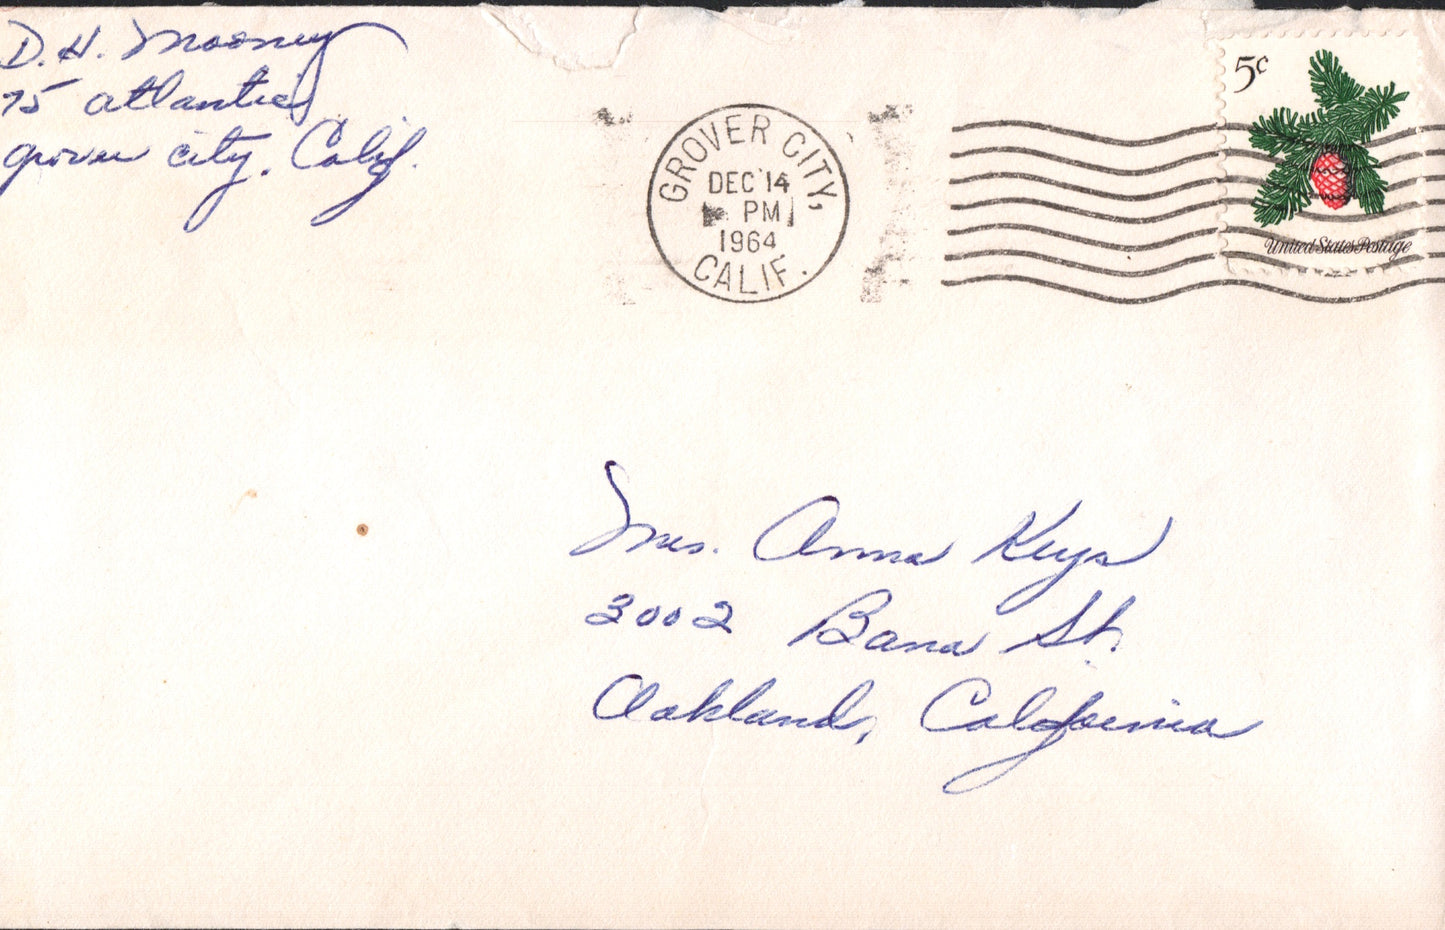 D. H. Mooney
75 Atlantic
Grover City, Calif.
GROVER CITY,
DEC 14
PM
1964
CALIF.
5c
United States Postage
Mrs. Anna Keys
3002 Bana St.
Oakland, California